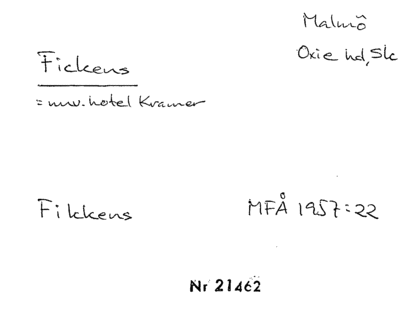 Malmö
Oxie hd, Sk
Fickens
= nuv. hotel Kramer
Fikkens MFÅ 1957:22
Nr 21462